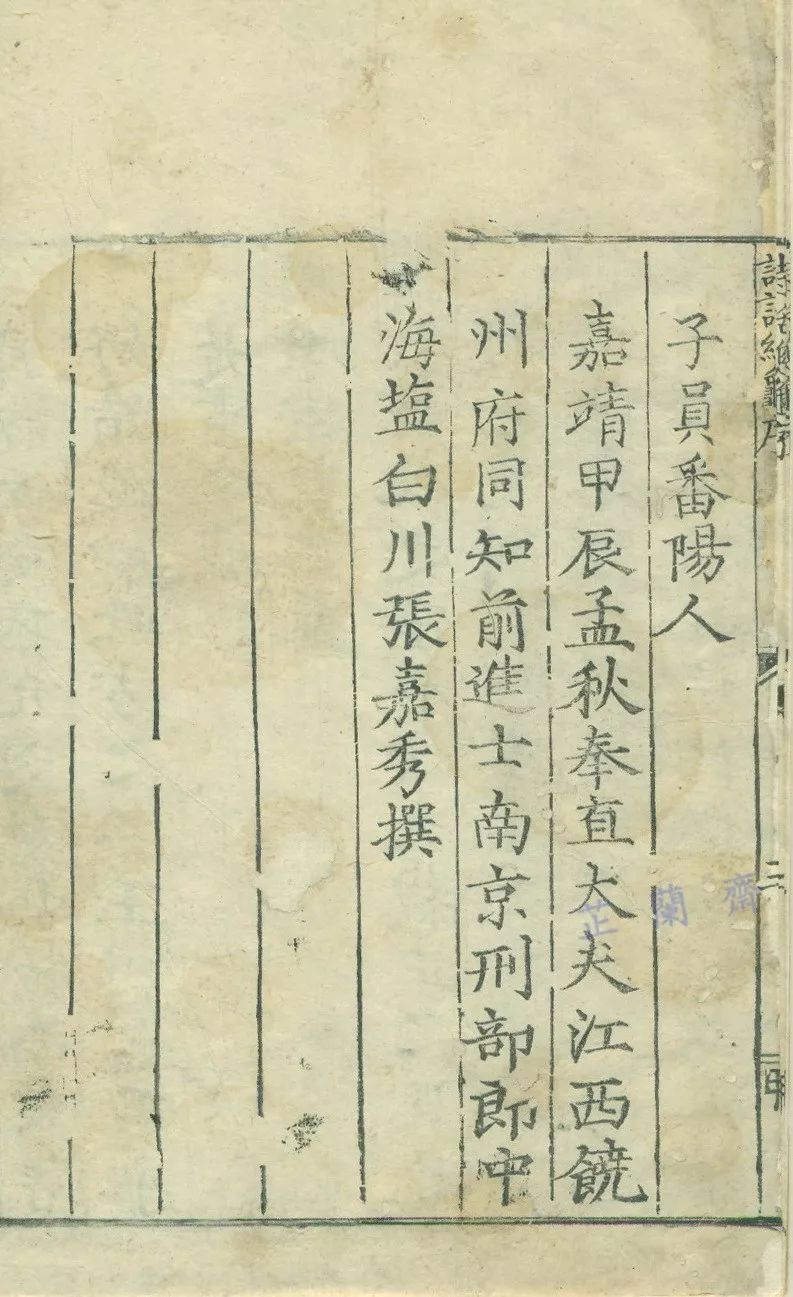 詩話總龜序
二
子員番陽人
嘉靖甲辰孟秋奉直大夫江西饒
州府同知前進士南京刑部郎中
海塩白川張嘉秀撰
芷蘭齋